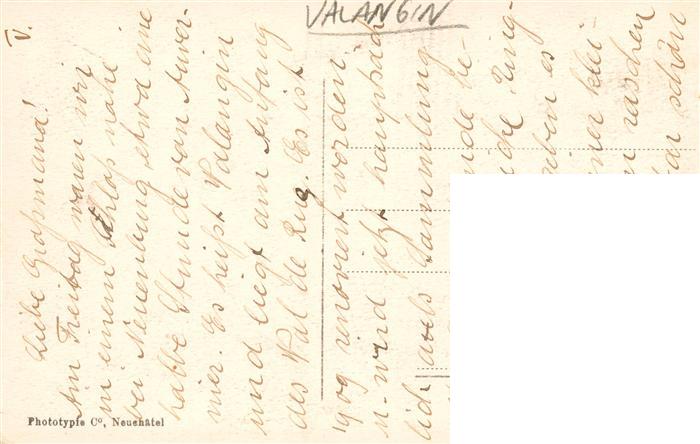 VALANGIN
V.
Liebe Großmama!
Am Freitag waren wir
in einem Schloß nahe
bei Neuenburg etwa eine
halbe Stunde von Auver-
nier. Es heißt Valangin
und liegt am Anfang
des Val de Ruz. Es ist
renoviert worden
u. wird jetzt haupsäch
lich als Sammlung
nde be-
Ring-
aben es
iner klei-
n raschen
ar schön
Phototypie Co, Neuchâtel